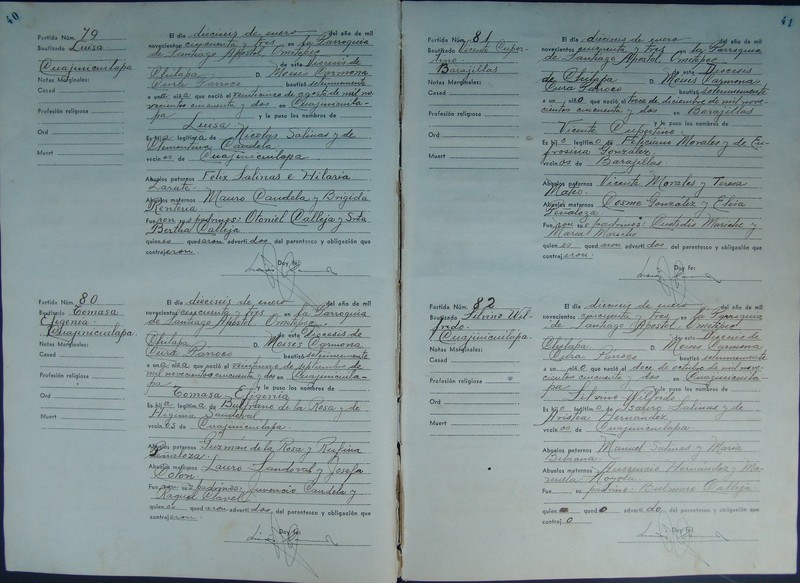 40
Partida Núm. 79
Bautizado Luisa
Cuajinicuilapa
Notas Marginales:
Casad
Profesión religiosa
Ord
Muert
El día dieciseis de enero del año de mil
novecientos cincuenta y tres en la Parroquia
de Santiago Apostol Ometepec
de esta Diocesis de
Chilapa D. Moises Carmona
Cura Parroco bautizó solemnemente
a una niña que nació el de agosto de mil no
vecientos cincuenta y dos en Cuajinicuila-
pa
Luisa y le puso los nombres de
Es hija legítima de Nicolas Salinas y de
Clementina Candela
vecinos de Cuajinicuilapa
Abuelos paternos Felix Salinas e Hilaria
Zarate
Abuelos maternos Mauro Candela y Brigida
Renteria
Fueron sus padrinos: Otoniel Calleja y Srta.
Bertha Calleja
quienes quedaron advertidos del parentesco y obligación que
contrajeron.
Doy fe:
Partida Núm. 80
Bautizado Tomasa
Efigenia
Cuajinicuilapa.
Notas Marginales:
Casad
Profesión religiosa
Ord
Muert
El día dieciseis de enero del año de mil
novecientos cincuenta y tres en la Parroquia
de Santiago Apostol Ometepec
de esta Diocesis de
Chilapa D. Moises Carmona
Cura Parroco bautizó solemnemente
a una niña que nació el de septiembre de
mil novecientos cincuenta y dos en Cuajinicuila-
pa y le puso los nombres de
Tomasa Efigenia
Es hija legítima de de la Rosa y de
Higinia Sandoval
vecinos de Cuajinicuilapa
Abuelos paternos Guzmán de la Rosa y Rufina
Peñaloza
Abuelos maternos Lauro Sandoval y Josefa
Colon
Fueron sus padrinos: Juvencio Candela y
Raquel Clavel
quienes quedaron advertidos del parentesco y obligación que
contrajeron.
Doy fe:
41
Partida Núm. 81
Bautizado Vicente Cuper-
tino
Barajillas
Notas Marginales:
Casad
Profesión religiosa
Ord
Muert
El día dieciseis de enero del año de mil
novecientos cincuenta y tres en la Parroquia
de Santiago Apostol Ometepec
de esta Diocesis
de Chilapa D. Moises Carmona
Cura Parroco bautizó solemnemente
a un niño que nació el trece de diciembre de mil nove-
cientos cincuenta y dos en Barajillas
y le puso los nombres de
Vicente Cupertino
Es hijo legítimo de Feliciano Morales y de Eu-
frosina González
vecinos de Barajillas
Abuelos paternos Vicente Morales y Teresa
Mateo
Abuelos maternos Cosme González y Elisa
Peñaloza
Fueron sus padrinos: Custodio Mariche y
Maria Mariche
quienes quedaron advertidos del parentesco y obligación que
contrajeron.
Doy fe:
Partida Núm. 82
Bautizado Silvino Wil-
frido
Cuajinicuilapa.
Notas Marginales:
Casad
Profesión religiosa
Ord
Muert
El día dieciseis de enero del año de mil
novecientos cincuenta y tres en la Parroquia
de Santiago Apostol Ometepec
de esta Diocesis de
Chilapa D. Moises Carmona
Cura Parroco bautizó solemnemente
a un niño que nació el doce de octubre de mil nove-
cientos cincuenta y dos en Cuajinicuila-
pa y le puso los nombres de
Silvino Wilfrido
Es hijo legítimo de Salinas y de
Aristea Hernandez
vecinos de Cuajinicuilapa
Abuelos paternos Manuel Salinas y Maria
Bibiana
Abuelos maternos Hernández y Ma-
nuela Noyola
Fue su padrino: Bulmaro Calleja
quien quedó advertido del parentesco y obligación que
contrajo
Doy fe: